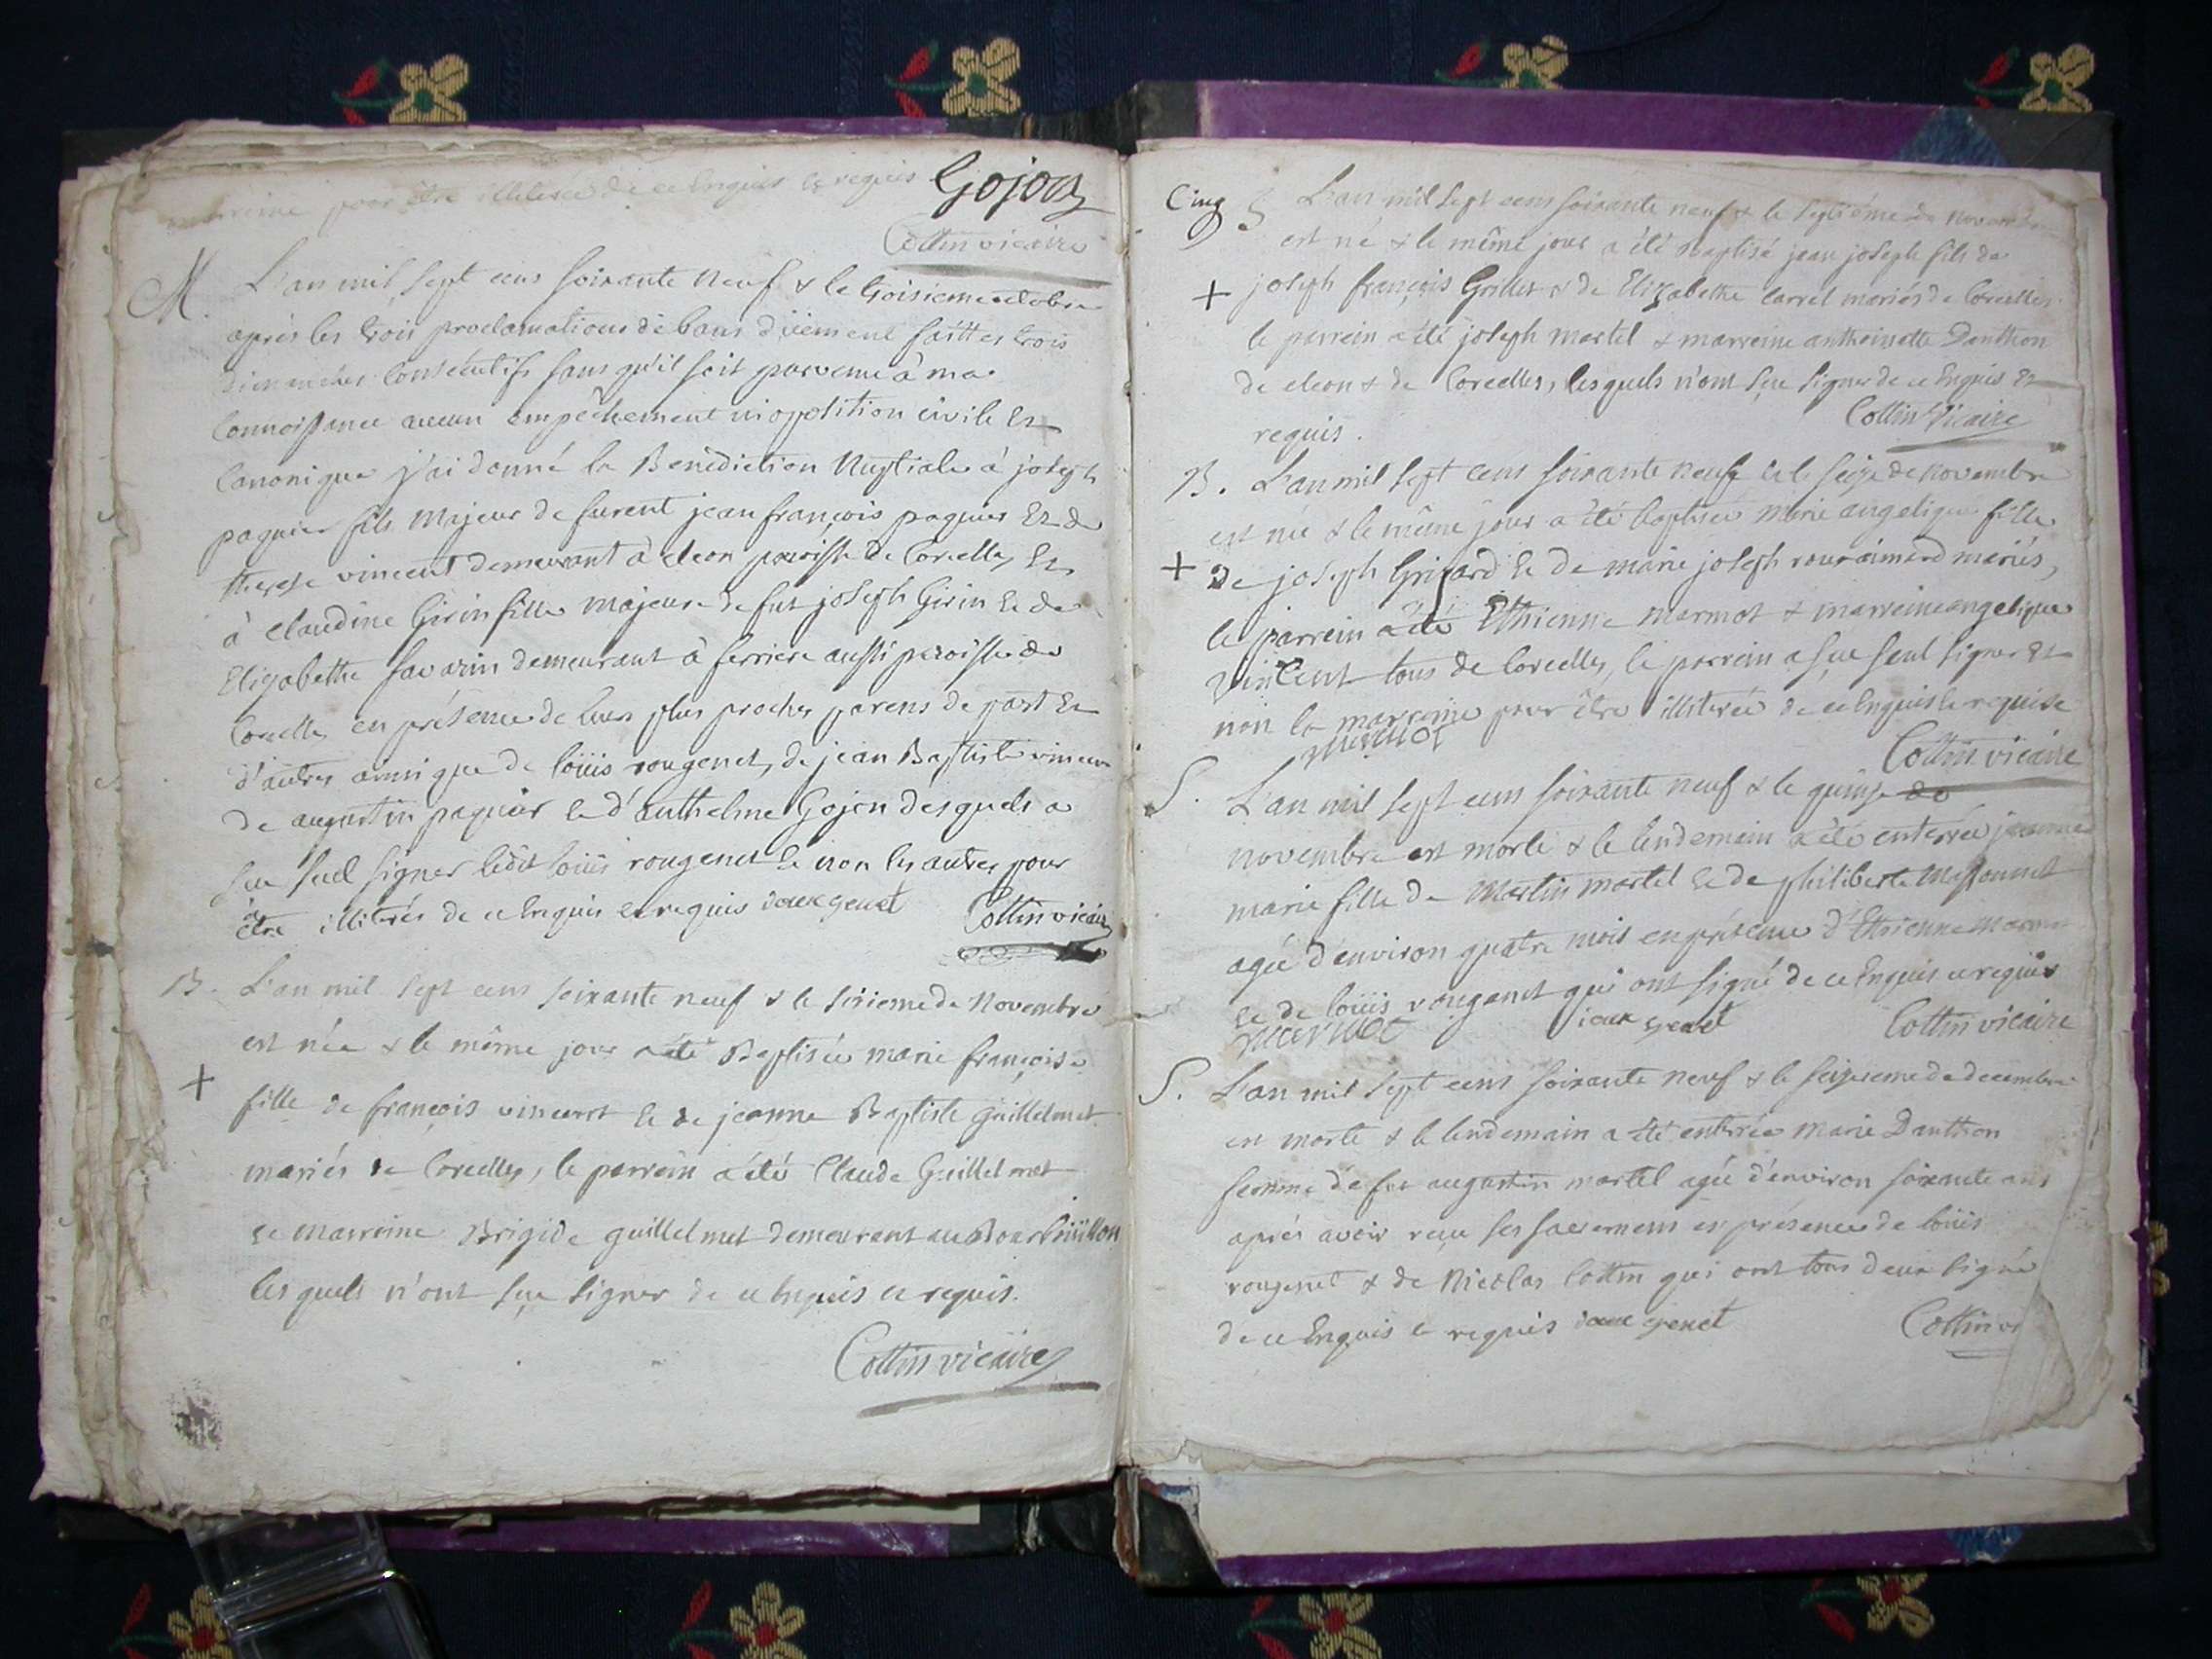 marreine pour être illiterée de ce Enquis et requis Gojon
Cottin vicaire
M. L'an mil sept cens soixante neuf & le troisieme octobre
après les trois proclamations de bans düement faittes trois
dimanches Consécutifs sans qu'il soit parvenu à ma
Connoissance aucun empêchement ni opposition civile Et
Canonique j'ai donné la Bénédiction Nuptiale à joseph
paquier fils Majeur de furent jean françois paquier Et de
therese vincent demeurant à eleon paroisse de Corcelles Et
à Claudine Girin fille majeure de fut joseph Girin Et de
Elizabethe Savarin demeurant à ferriere aussi paroisse de
Corcelles en présence de leurs plus proches parens de part Et
d'autres ainsi que de loüis rougenet, de jean Baptiste vincent
de augustin paquier Et d'anthelme Gojon desquels a
sçu seul signer ledit loüis rougenet Et non les autres pour
être illiterés de ce Enquis et requis Cottin vicaire
B. L'an mil sept cens soixante neuf & le sixieme de Novembre
est née & le même jour a été Baptisée marie françoise
+ fille de françois vincent Et de jeanne Baptiste guillelmet
mariés de Corcelles, le parrein a été Claude Guillelmet
et marreine Brigide guillelmet demeurant au Bourbouillon
les quels n'ont sçu signer de ce Enquis et requis.
Cottin vicaire
Cinq B L'an mil sept cens soixante neuf & le septiéme de novembre
est né & le même jour a été Baptisé jean joseph fils de
+ joseph françois Grillet & de Elizabethe Carrel mariés de Corcelles
le parrein a été joseph martel & marreine anthoinette Danthon
de eleon & de Corcelles, lesquels n'ont sçu signer de ce Enquis Et
requis. Cottin Vicaire
B. L'an mil sept cens soixante neuf Et le seize de novembre
est née & le même jour a été baptisée marie angelique fille
+ de joseph Grizard Et de marie joseph mariés,
le parrein a été Ethienne marmot & marreine angelique
vincent tous de Corcelles, le parrein a sçu seul signer Et
non la marreine pour être illiterée de ce Enquis Et requise
Cottin vicaire
S. L'an mil sept cens soixante neuf & le quinze de
novembre est morte & le lendemain a été enterrée jeanne
marie fille de Martin martel Et de philiberte Massonnet
agée d'environ quatre mois en présence d'Ethienne marmot
Et de loüis rougenet qui ont signé de ce Enquis et requis
Cottin vicaire
S. L'an mil sept cens soixante neuf & le seizieme de decembre
est morte & le lendemain a été enterrée Marie Danthon
femme de feu augustin martel agée d'environ soixante ans
après avoir reçu ses sacremens en présence de loüis
rougenet & de Nicolas Cottin qui ont tous deux signé
de ce Enquis et requis Cottin vi